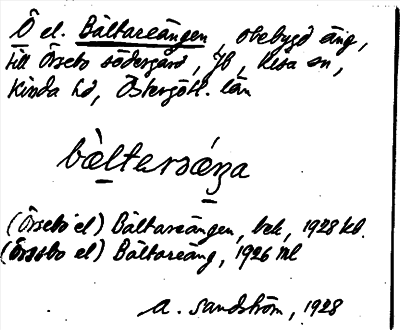 Ö el. Bältareängen, obebygd äng,
till Örsebo södergård, Jb, Kisa sn,
Kinda hd, Östergötl. län
bæ̀ltarəǽŋa
(Örsebo el) Bältareängen, bek, 1928 kb.
(Örsebo el) Bältareäng, 1926 ml
A. Sandström, 1928